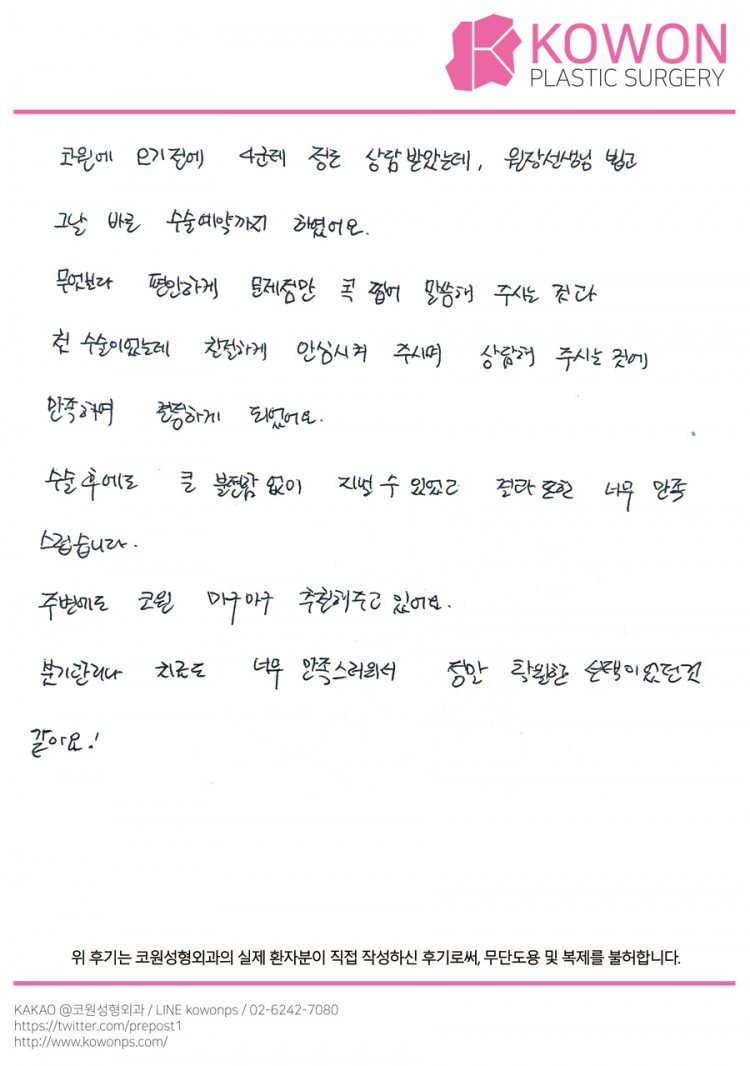 KOWON
PLASTIC SURGERY
코원에 오기전에 4군데 정도 상담받았는데, 원장선생님 뵙고
그날 바로 수술예약까지 하였어요.
무엇보다 편안하게 문제점만 콕 찝어 말씀해 주시는 것과
첫 수술이었는데 친절하게 안심시켜 주시며 상담해 주시는 것에
만족하며 결정하게 되었어요.
수술후에도 큰 불편함 없이 지낼 수 있었고 결과 또한 너무 만족
스럽습니다.
주변에도 코원 마구마구 추천해주고 있어요.
붓기관리나 치료도 너무 만족스러워서 정말 탁월한 선택이었던것
같아요!
위 후기는 코원성형외과의 실제 환자분이 직접 작성하신 후기로써, 무단도용 및 복제를 불허합니다.
KAKAO @코원성형외과 / LINE kowonps / 02-6242-7080
https://twitter.com/prepost1
http://www.kowonps.com/